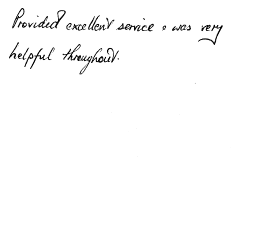 Provided excellent service & was very
helpful throughout.